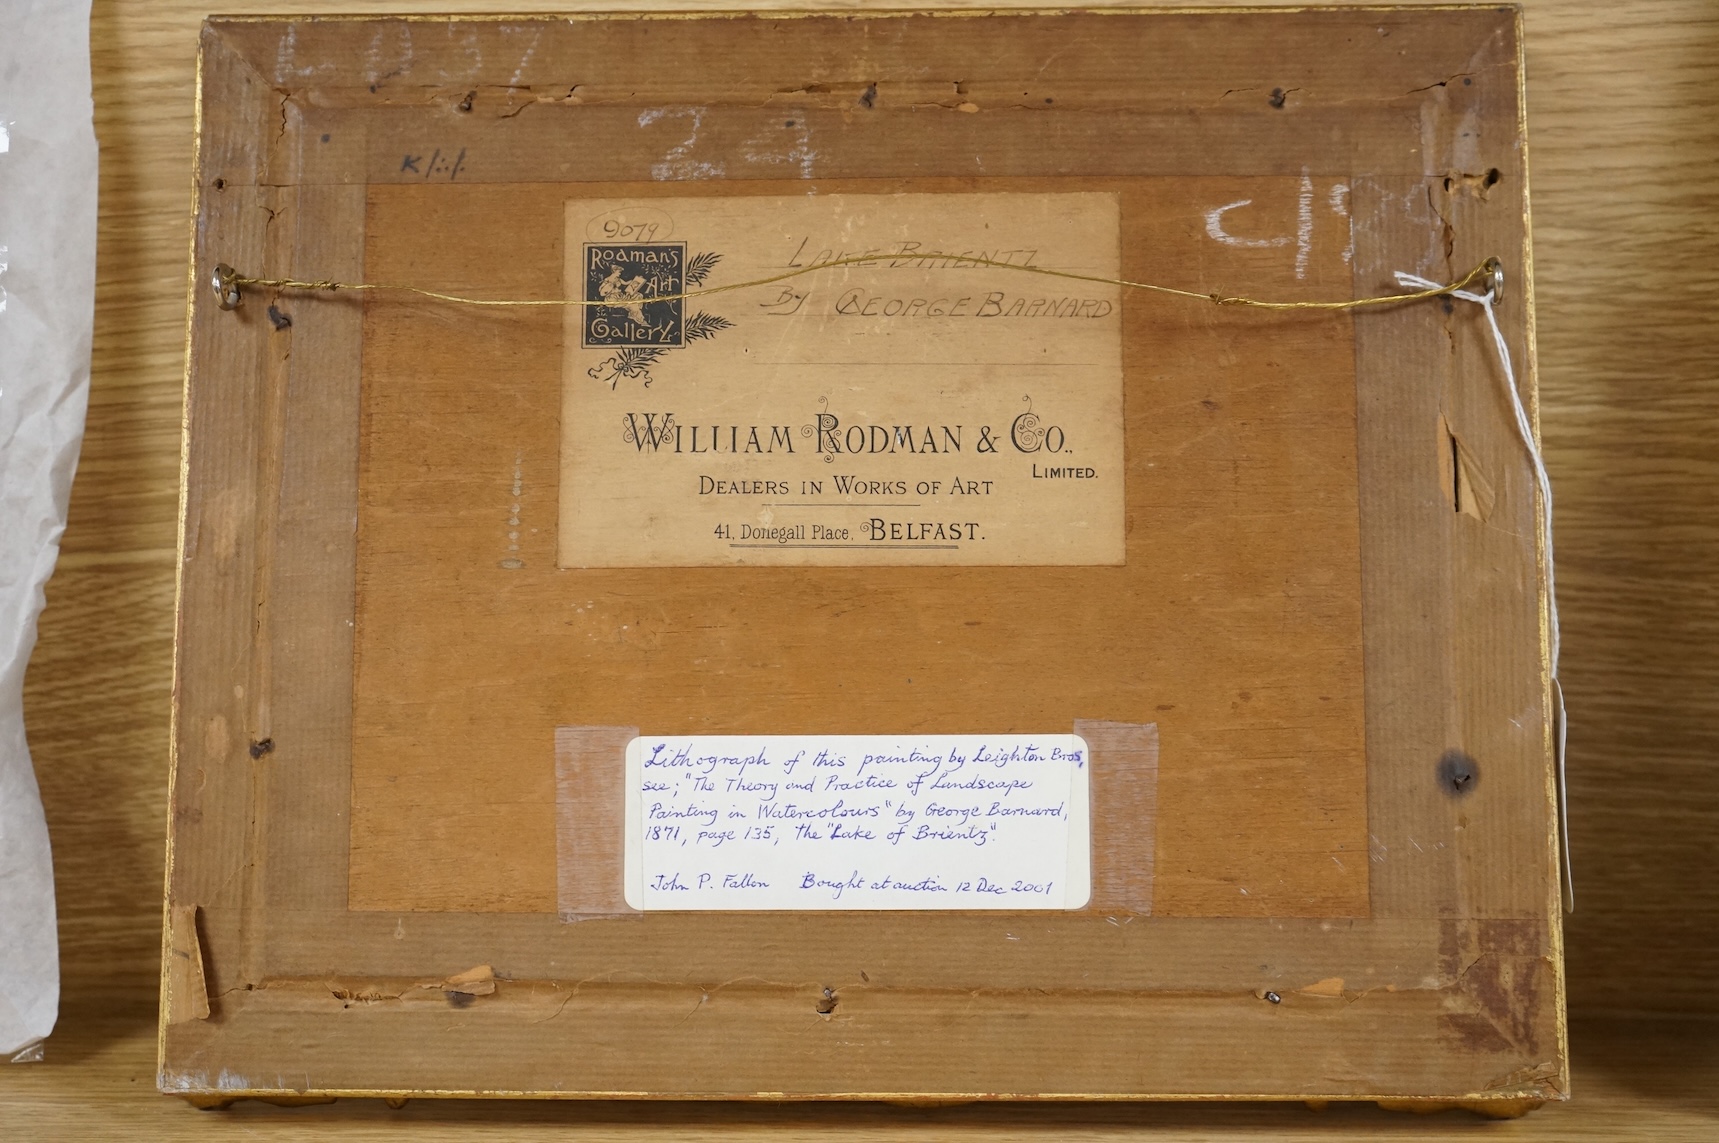 24
K/·/·/·
9079
Rodman's
Art
Gallery
LAKE BRIENTZ
By GEORGE BARNARD
WILLIAM RODMAN & Co.,
LIMITED.
DEALERS IN WORKS OF ART
41, Donegall Place, BELFAST.
Lithograph of this painting by Leighton Bros,
see; "The Theory and Practice of Landscape
Painting in Watercolours" by George Barnard,
1871, page 135, the "Lake of Brientz".
John P. Fallon Bought at auction 12 Dec 2001